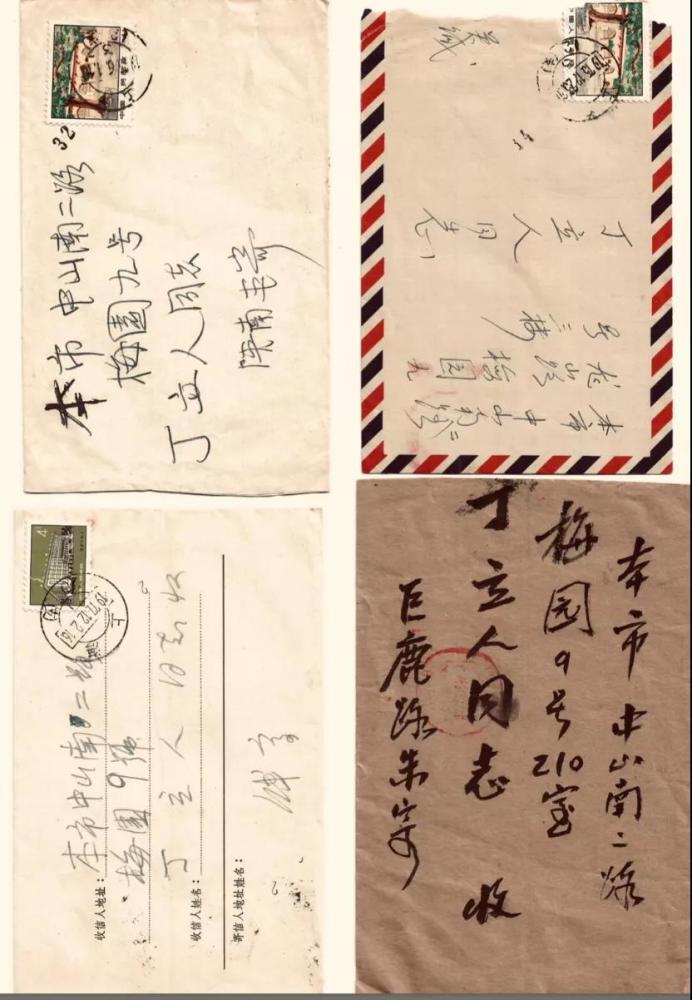 32
本市中山南二路
梅園九号
丁立人同志
陕南韦寄
丁立人同志
本市中山南二路
梅園九
号三楼
4
上海
收信人地址：
本市中山南二路
梅園9號
收信人姓名：
丁立人同志收
寄信人地址姓名：
本市中山南二路
梅园9号210室
丁立人同志 收
巨鹿路朱寄